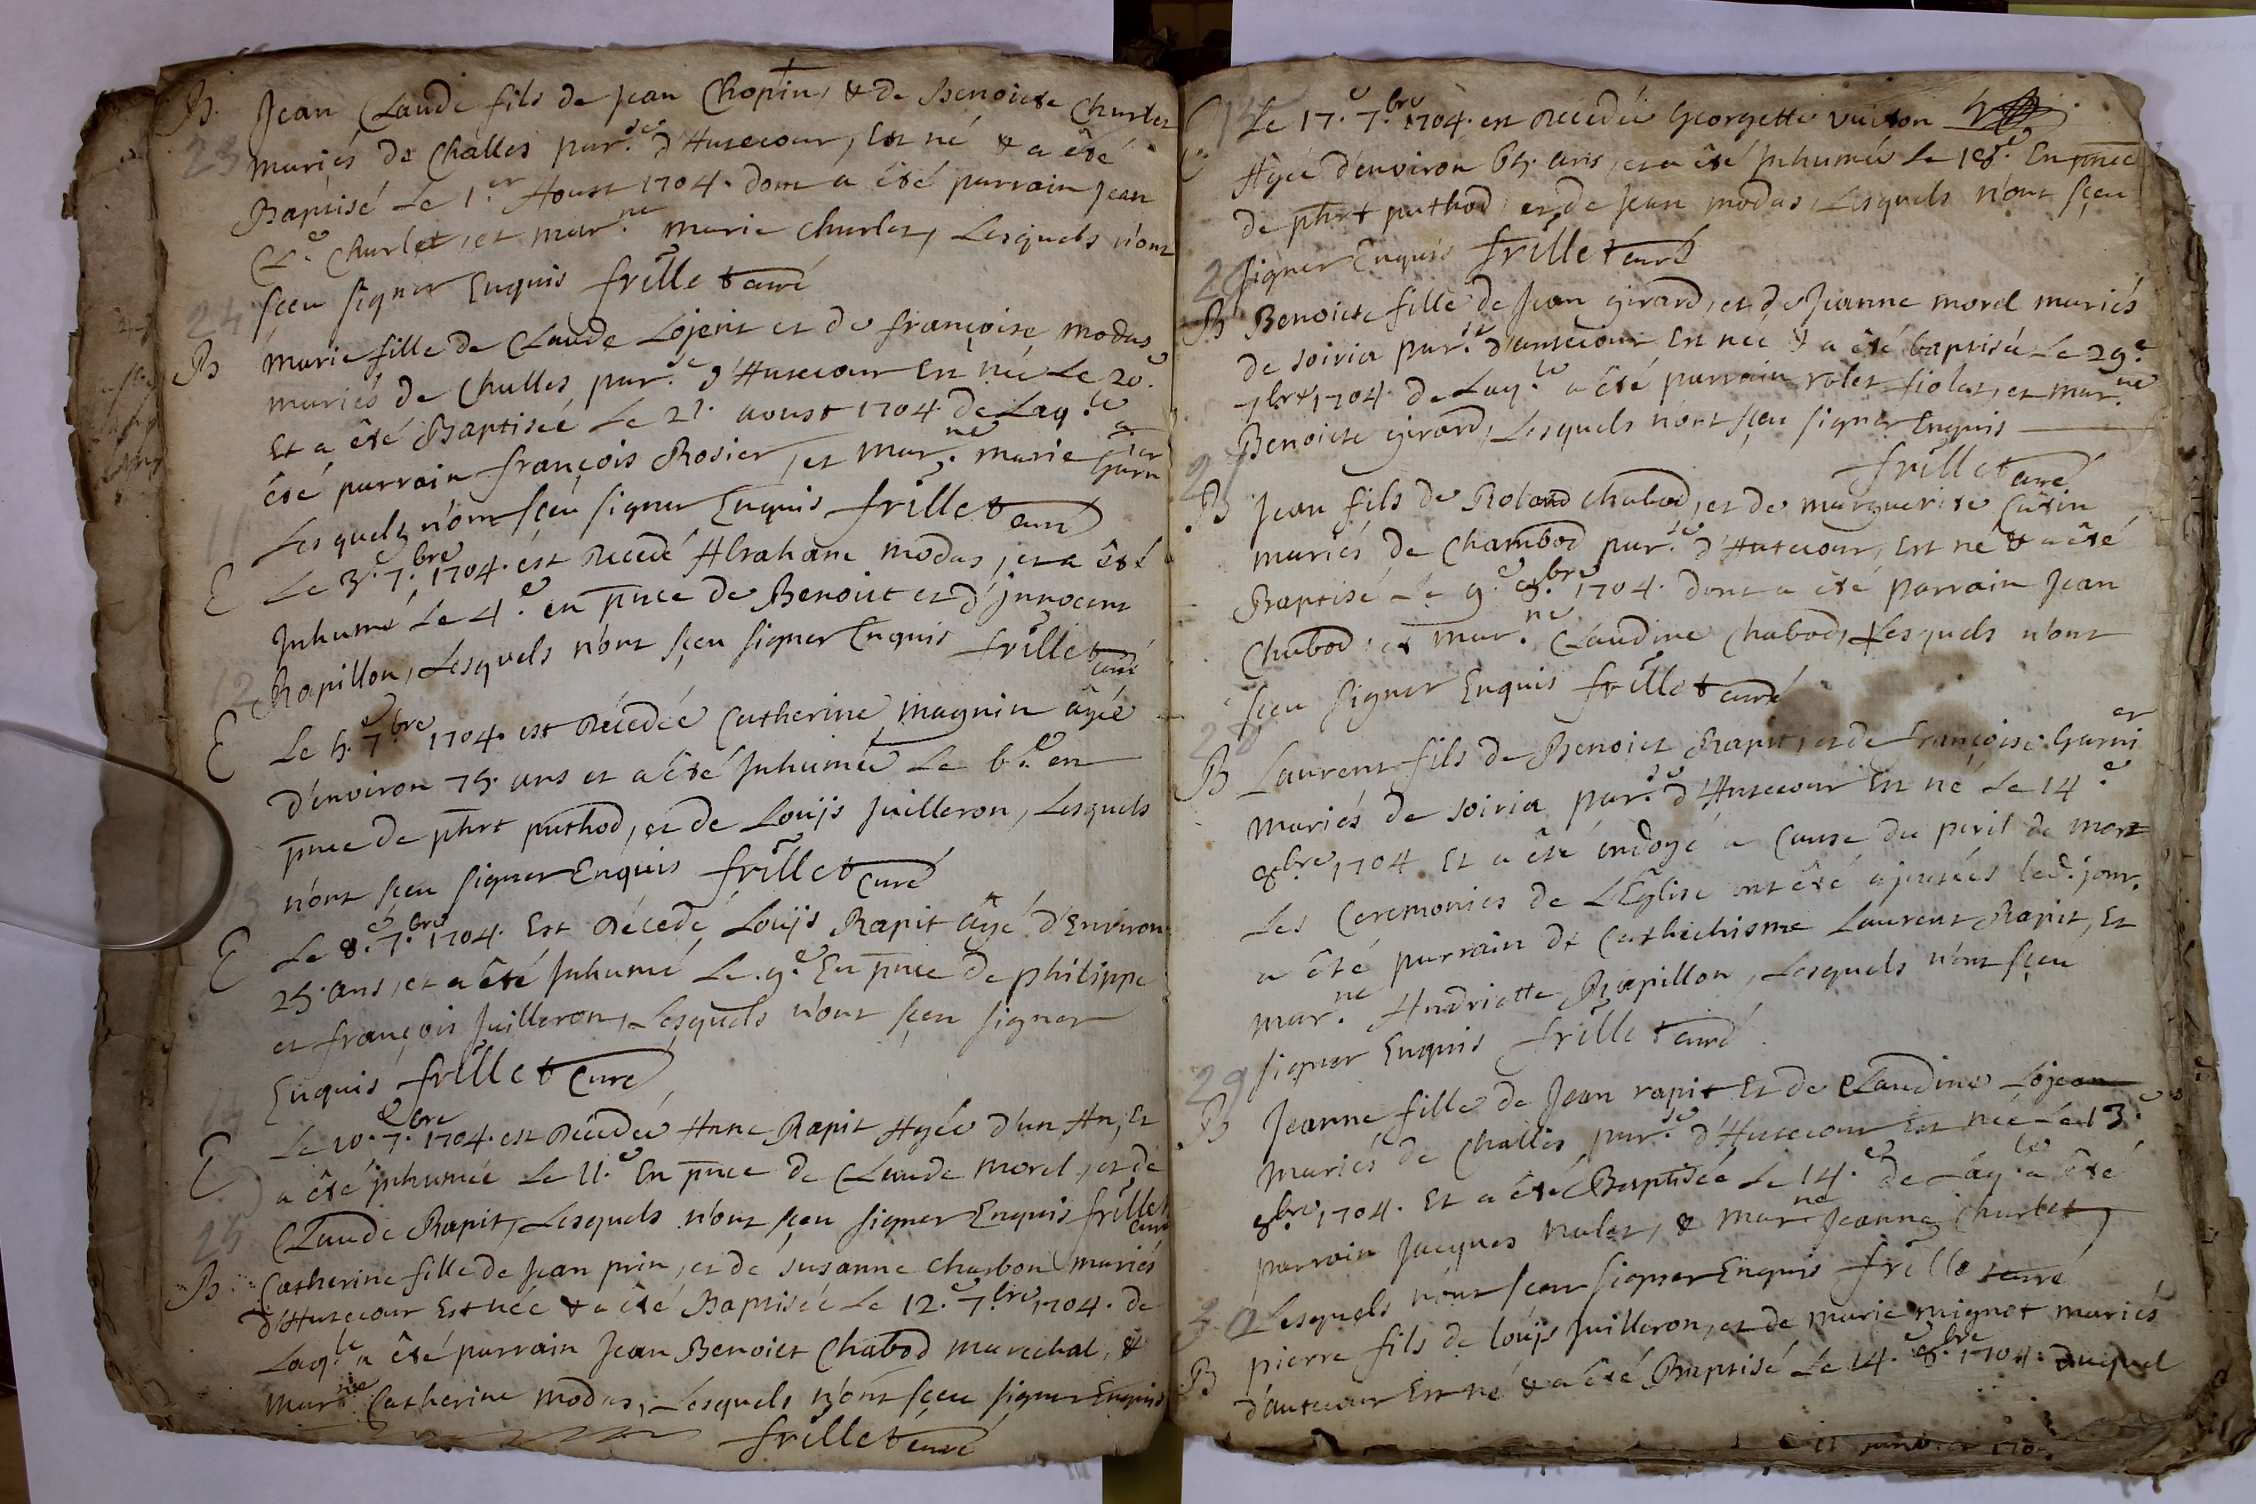 B. Jean Claude fils de Jean Chopin, & de Benoiste Churlet
23 mariés de Challes par.se d'Hutecour, Est né & a êté
Baptisé Le 1.er Aoust 1704. dont a êté parrain Jean
Cl.e Churlet, et mar.ne marie Churlet, Lesquels n'ont
sçeu signer Enquis frillet curé
24
B marie fille de Claude Lojent et de françoise modas
mariés de Challes, par.se d'Hutecour Est née Le 20.e
Et a êté Baptisée Le 21. aoust 1704. de Laq.le a
êté parrain françois Rosier, et mar.ne marie Garnier
Lesquels n'ont sçeu signer Enquis frillet curé
11
E Le 3.e 7.bre 1704. est décedé Abraham modas, et a êté
Inhumé Le 4.e en pnce de Benoict et d'Innocent
Rapillon, Lesquels n'ont sçeu signer Enquis frillet curé
12
E Le 5.e 7.bre 1704. est décedée Catherine magnin âgée
d'environ 75. ans et a êté Inhumée Le 6.e en
pnce de phrt puthod, et de Louijs Juilleron, Lesquels
n'ont sçeu signer Enquis frillet Curé
13
E Le 8.e 7.bre 1704. Est décedé Louijs Rapit âgé d'Environ
25. ans, et a êté Inhumé Le .9.e En pnce de philippe
et françois Juilleron, Lesquels n'ont sçeu signer
Enquis frillet Curé
14
E Le 10.e 7.bre 1704. est décedée Anne Rapit Agée d'un An, Et
a êté Inhumée Le 11.e En pnce de Claude morel, et de
Claude Rapit, Lesquels n'ont sçeu signer Enquis frillet curé
25
B. Catherine fille de Jean prin, et de susanne Charbon mariés
d'Hutecour Est née & a êté Baptisée Le 12.e 7.bre 1704. de
Laq.le a êté parrain Jean Benoict Chabod marechal, &
mar.ne Catherine modas, Lesquels n'ont sçeu signer Enquis
frillet curé
15
E Le 17.e 7.bre 1704. est decedée Georgette vuiton
Agée d'environ 65. ans, et a êté Inhumée Le 18.e En pnce
de phrt puthod, et de Jean modas, Lesquels n'ont sçeu
signer Enquis frillet curé
26
B Benoiste fille de Jean girard, et de Jeanne morel mariés
de soiria par.se d'autecour Est née & a êté baptisée Le 29.e
7.bre 1704. de Laq.le a êté parrain rolet fiolet, et mar.ne
Benoiste girard, Lesquels n'ont sçeu signer Enquis
frillet curé
27
B Jean fils de Roland Chabod, et de marguerite Cutin
mariés de Chambod par.se d'Hutecour, Est né & a êté
Baptisé Le 9.e 8.bre 1704. dont a êté parrain Jean
Chabod, et mar.ne Claudine Chabod, Lesquels n'ont
sçeu signer Enquis frillet curé
28
B Laurent fils de Benoict Rapit, et de françoise Garnier
mariés de soiria par.se d'Hutecour Est né Le 14.e
8.bre 1704. Et a êté endoyé a Cause du peril de mort
Les Ceremonies de L'Eglise ont êté ajoutées led. jour.
a êté parrain de Cathichisme Laurent Rapit, Et
mar.ne Andriette Rapillon, Lesquels n'ont sçeu
signer Enquis frillet curé
29
B Jeanne fille de Jean rapit Et de Claudine Lojean
mariés de Challes par.se d'Hutecour Est née Le 13.e
8.bre 1704. Et a êté Baptisée Le 14.e de Laq.le a êté
parrain Jacques nulet, & mar.ne Jeanne Churlet,
Lesquels n'ont sçeu signer Enquis frillet curé
30
B pierre fils de louijs Juilleron, et de marie mignot mariés
d'autecour Est né & a êté Baptisé Le 14.e 8.bre 1704. duquel